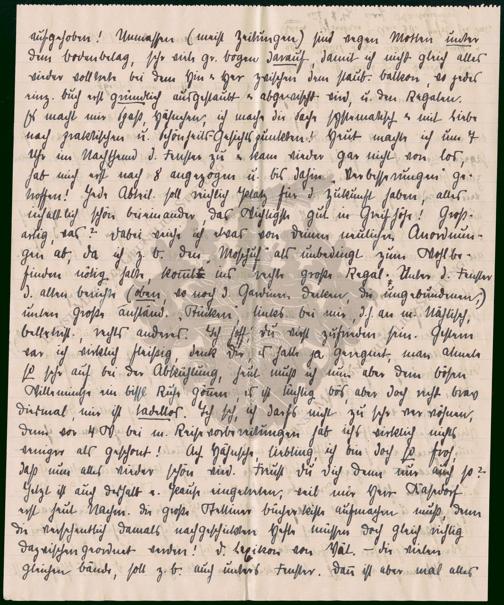 aufgehoben! Unmassen (meist Zeitungen) sind wegen Motten unter
dem bodenbelag, sehr viele gr. bogen darauf, damit ich nicht gleich alles
wieder voll hab bei dem Hin & Her zwischen dem staub. balkon, wo jedes
einz. buch erst gründlich ausgestaubt & abgewischt wird, u. den Regalen.
Es macht mir Spaß, Hähnchen, ich mache die Sache systematisch & mit Liebe
nach praktischen u. Schönheits-Gesichtspunkten! Heut machte ich um 7
Uhr im Nachthemd d. Fenster zu & kam wieder gar nicht von los,
hab mich erst nach 8 angezogen u. bis dahin Verbesserungen ge-
troffen! Jede Abteil. soll reichlich Platz für d. Zukunft haben, alles
inhaltlich schön beieinander, das Wichtigste gut in Greifhöhe! Groß-
artig, was? Dabei weiche ich etwas von deinen neulichen Anordnun-
gen ab, da ich z. b. den als unbedingt zum Wohlbe-
finden nötig halte, kommt ins rechte große Regal. Unter d. Fenster
d. alten berichte (oben, wo noch d. Gardinen decken, die ungebundenen,)
unten großes anständ. Rücken, links bei mir, d.h. am m. Nähtisch,
belletrist., rechts anderes. Ich hoff du wirst zufrieden sein. Gestern
war ich wirklich fleissig, denk dir, es hatte ja geregnet, man atmete
so sehr auf bei der Abkühlung, heut muß ich nun aber dem bösen
Willeminche ein bissl Ruhe gönnen, es ist tüchtig bös aber doch nicht brav
diesmal mir ist tadellos! Ich seh, ich darfs nicht zu sehr verwöhnen,
denn vor 4 W bei m. Reisevorbereitungen hab ichs wirklich nichts
weniger als geschont! Ach Hähnche Liebling ich bin doch so froh,
daß nun alles wieder schön wird. Freust du dich denn nun auch so?
Jetzt ist auch deshalb e. Pause eingetreten, weil mir Herr Kasdorf
erst heut Nachm. die großen Stettiner bücherkisten aufmachen muß, denn
die versehentlich damals nachgeschickten Hefte müssen doch gleich richtig
dazwischengeordnet werden! d. Lexikon von Vät. – die vielen
gleichen bände, soll z. b. auch unters Fenster. Dann ist aber mal alles